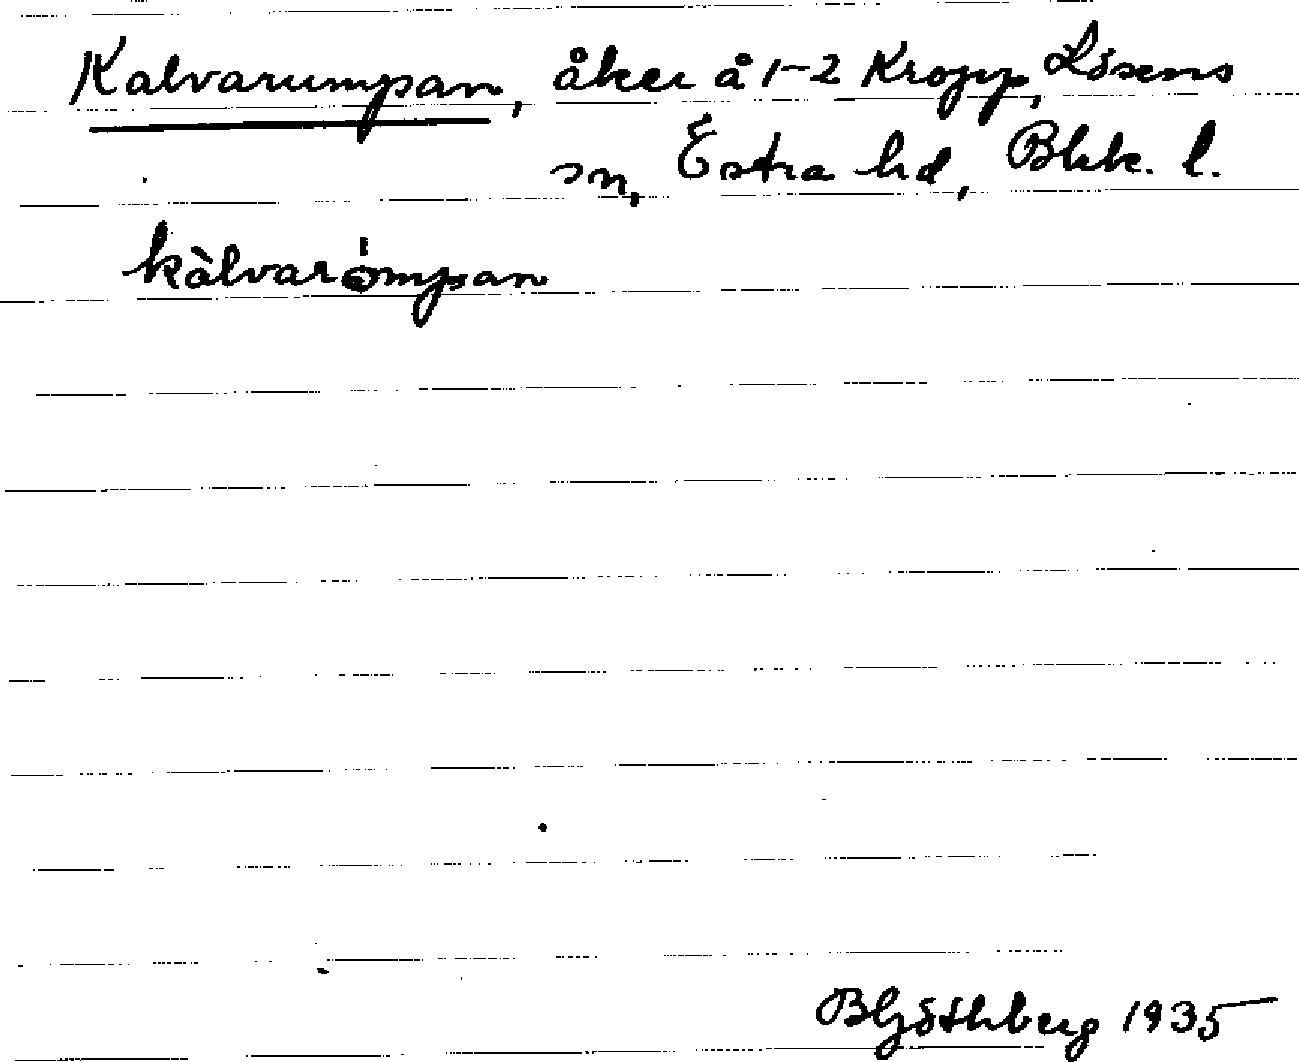 Kalvarumpan, åker å 1-2 Kropp, Lösens
sn, Östra hd, Blek. l.
kàlvarómpan
B Göthberg 1935